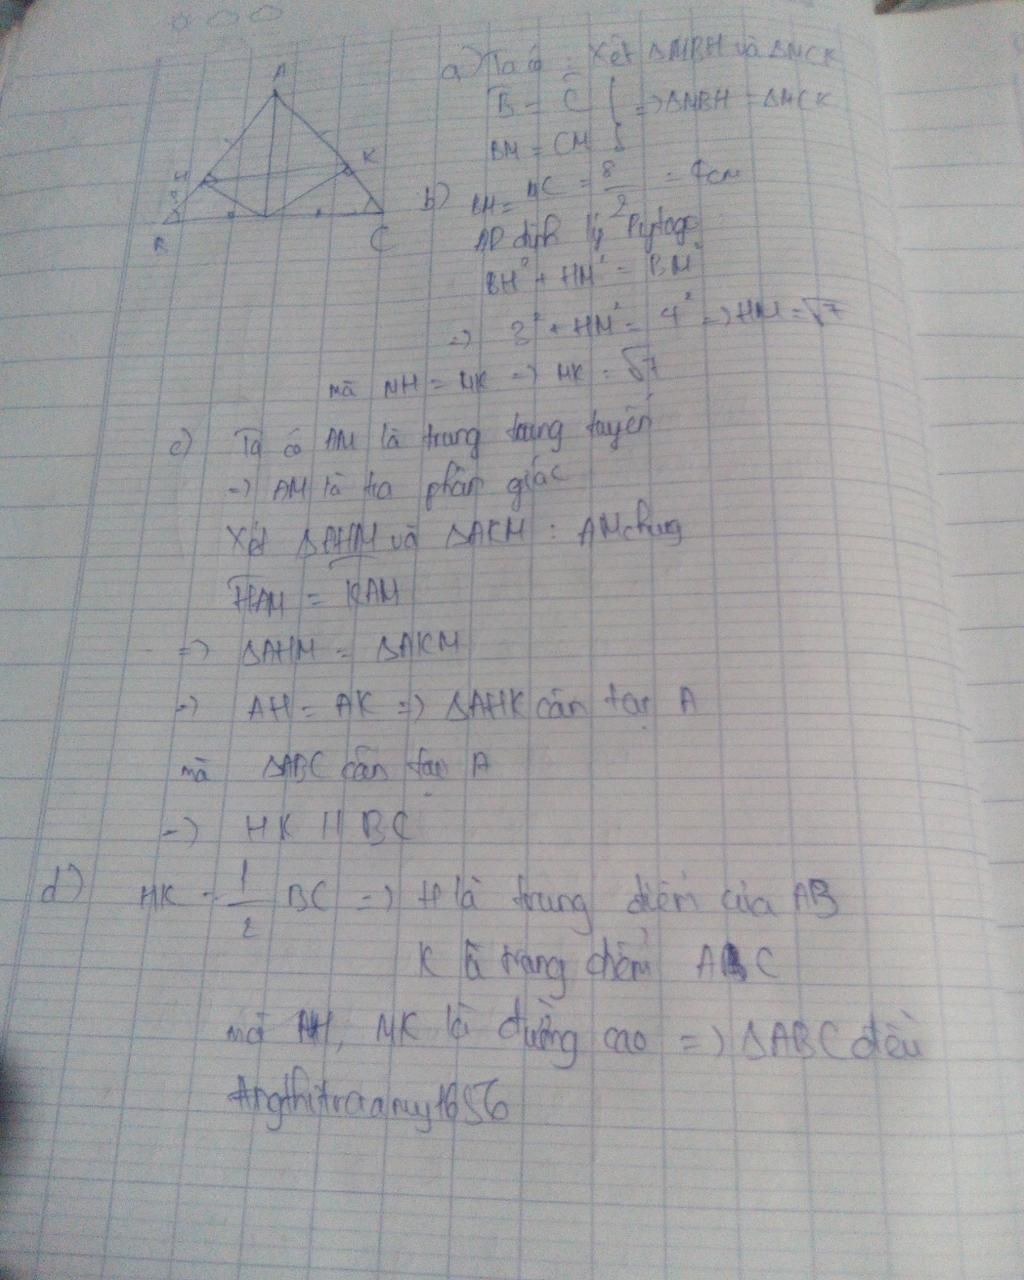 A
H
K
B
C
a) Ta có : Xét ΔMBH và ΔMCK
B = C } => ΔMBH = ΔMCK
BM = CM
b) BM = BC = 8/2 = 4cm
AD định lý Pytago
BH² + HM² = BM²
=> 3² + HM² = 4² => HM = √7
mà MH = MK => MK = √7
c) Ta có AM là trung trung tuyến
=> AM là tia phân giác
Xét ΔAHM và ΔAKM : AM chung
HAM = KAM
=> ΔAHM = ΔAKM
=> AH = AK => ΔAHK cân tại A
mà ΔABC cân tại A
=> HK // BC
d) HK = 1/2 BC => H là trung điểm của AB
K là trung điểm AC
mà MH, MK là đường cao => ΔABC đều